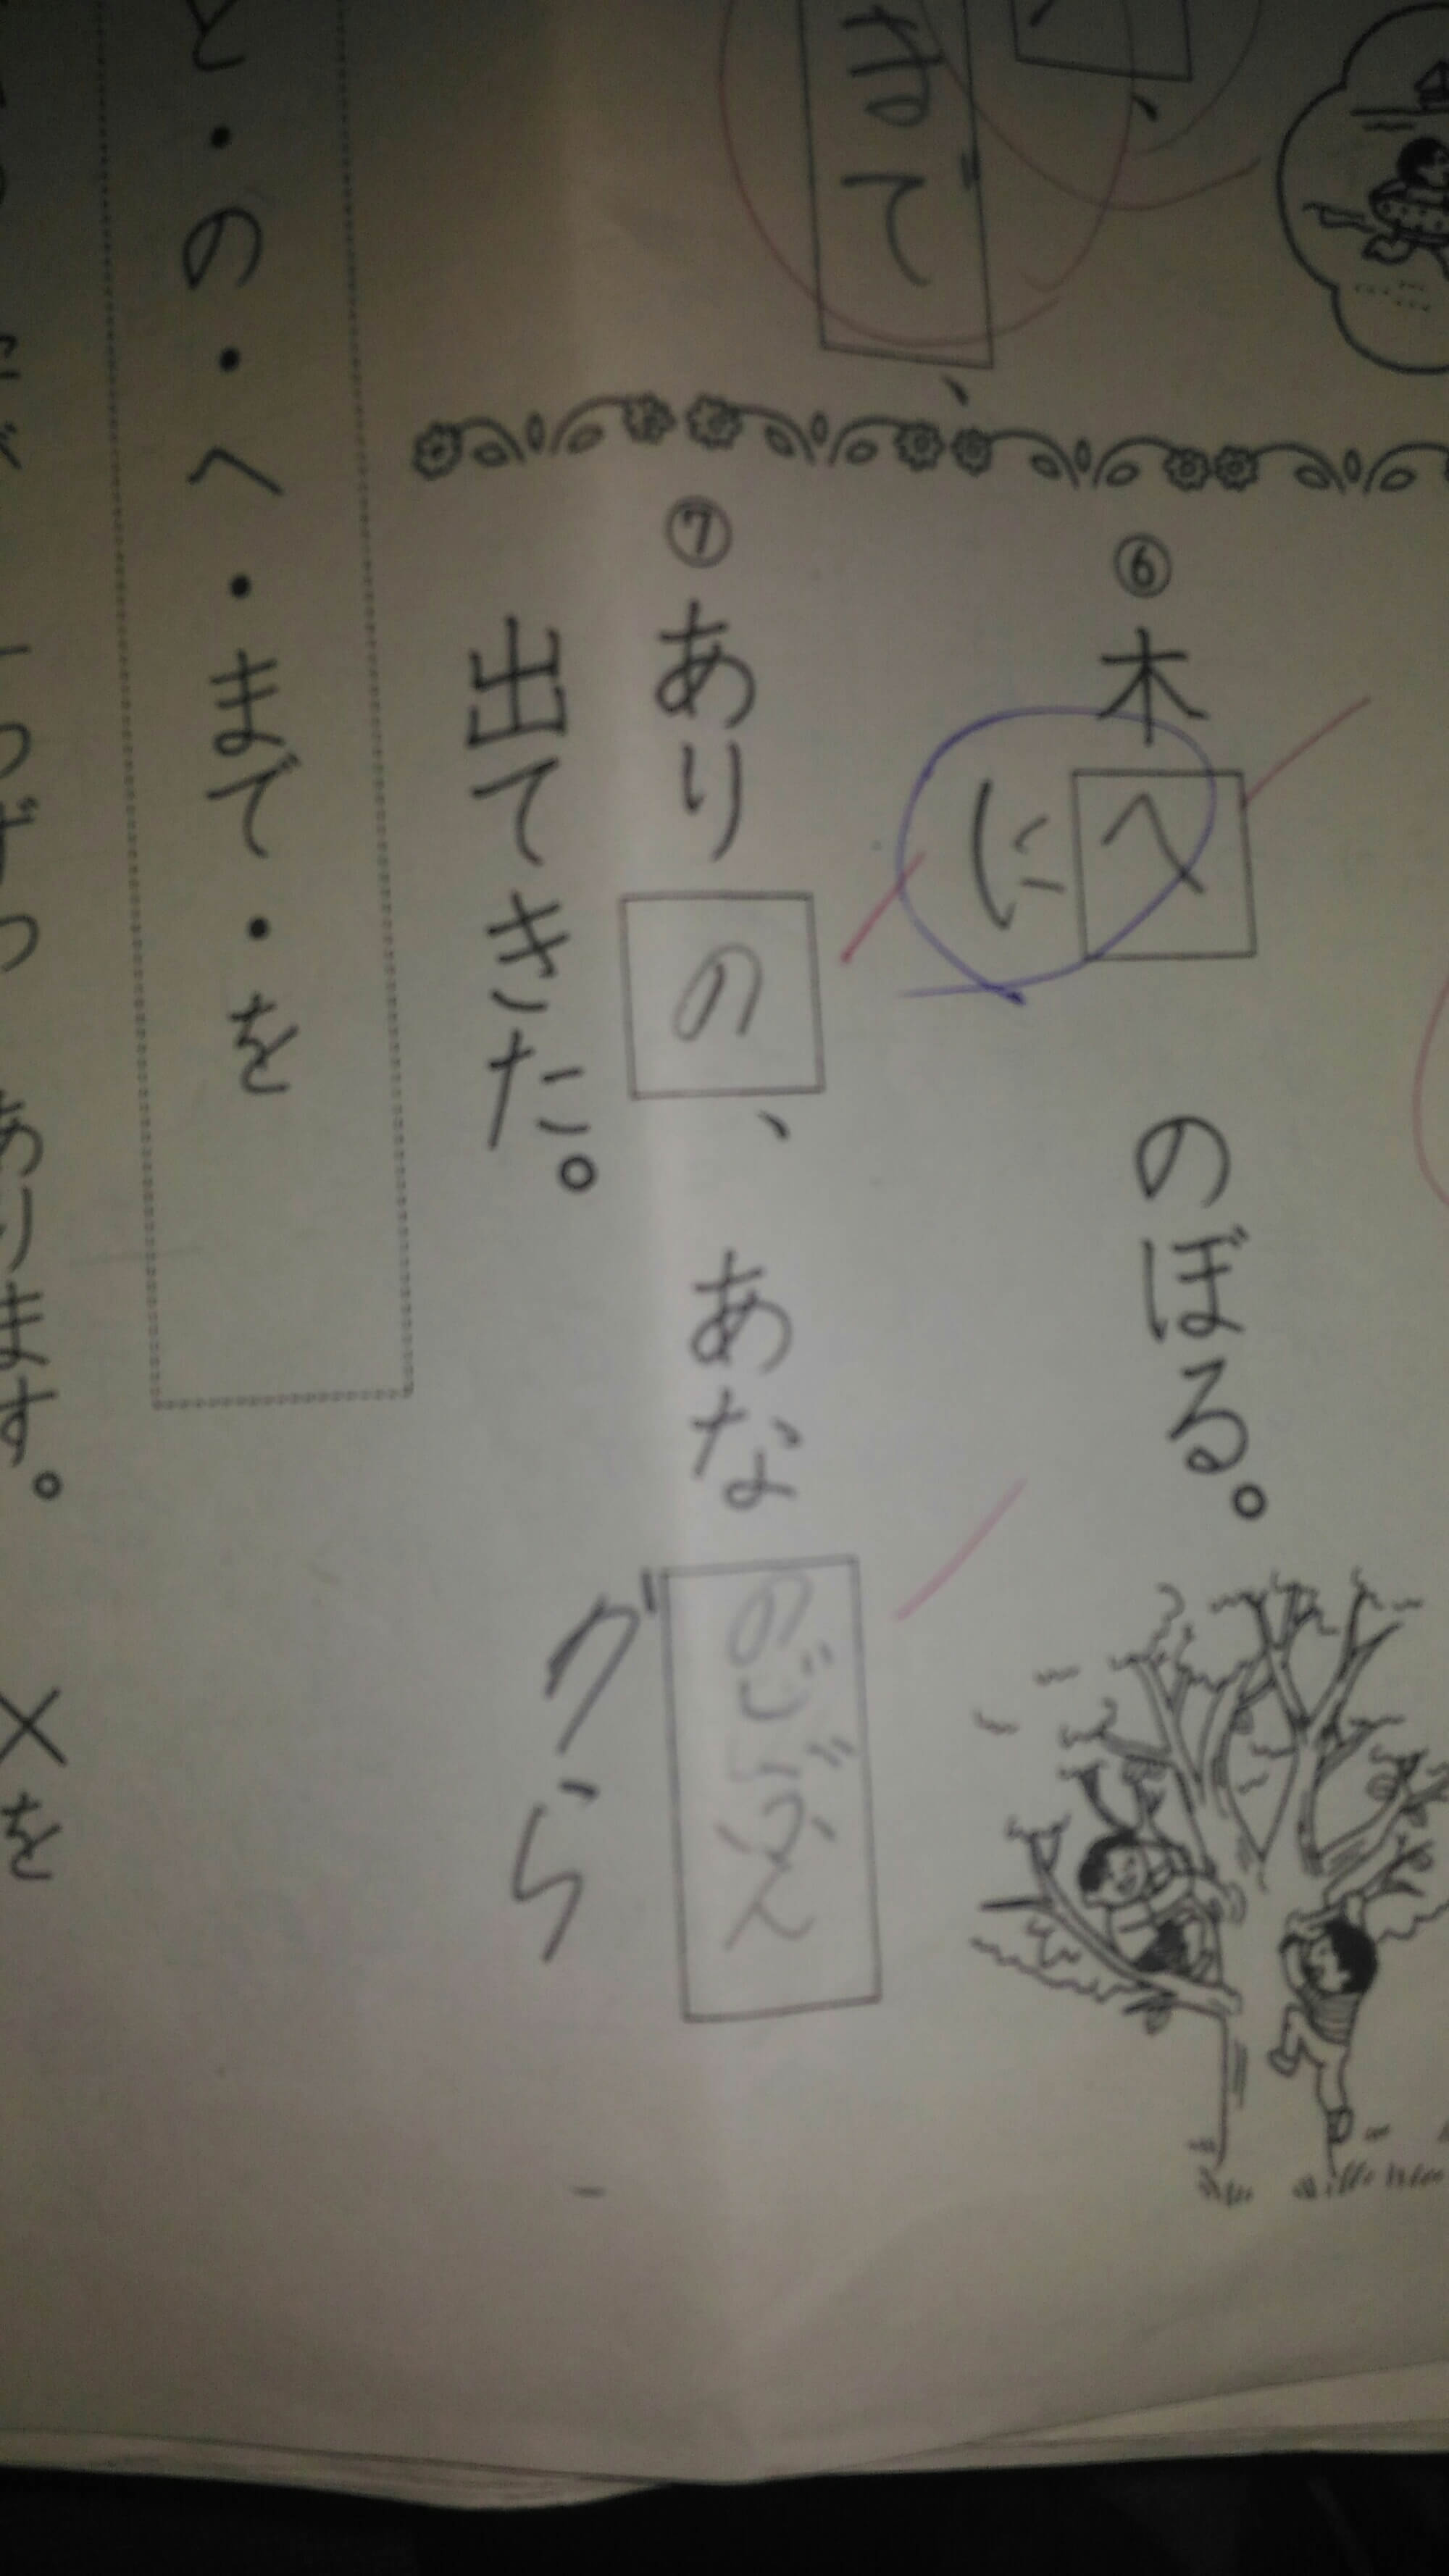 まで、
⑥木へ のぼる。
に
⑦ありの、 あな
出てきた。
から
と・の・へ・まで・を
つずつ あります。 ×を